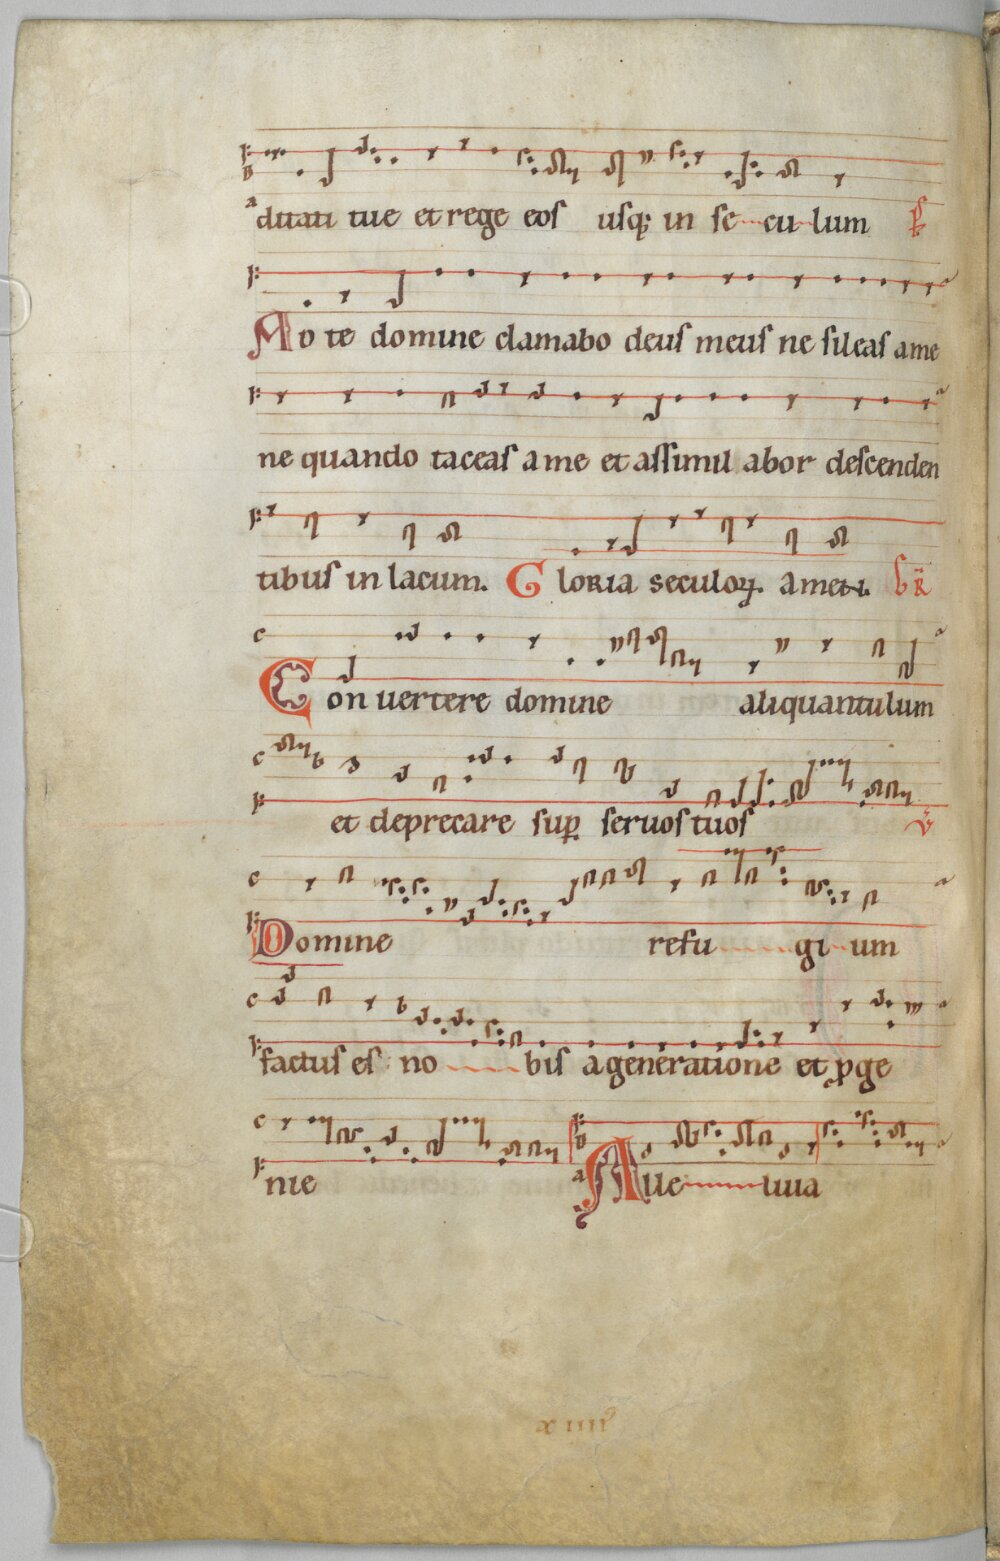 ditati tue et rege eos usq; in se cu lum ps
Ad te domine clamabo deus meus ne sileas a me
ne quando taceas a me et assimil abor descenden
tibus in lacum. Gloria seculoꝝ. amen. Gr̃
Con uertere domine aliquantulum
et deprecare sup̲ seruos tuos v̄
Domine refu gi um
factus es no bis a generatione et ꝓge
nie Alle luia
xiiiiꝰ